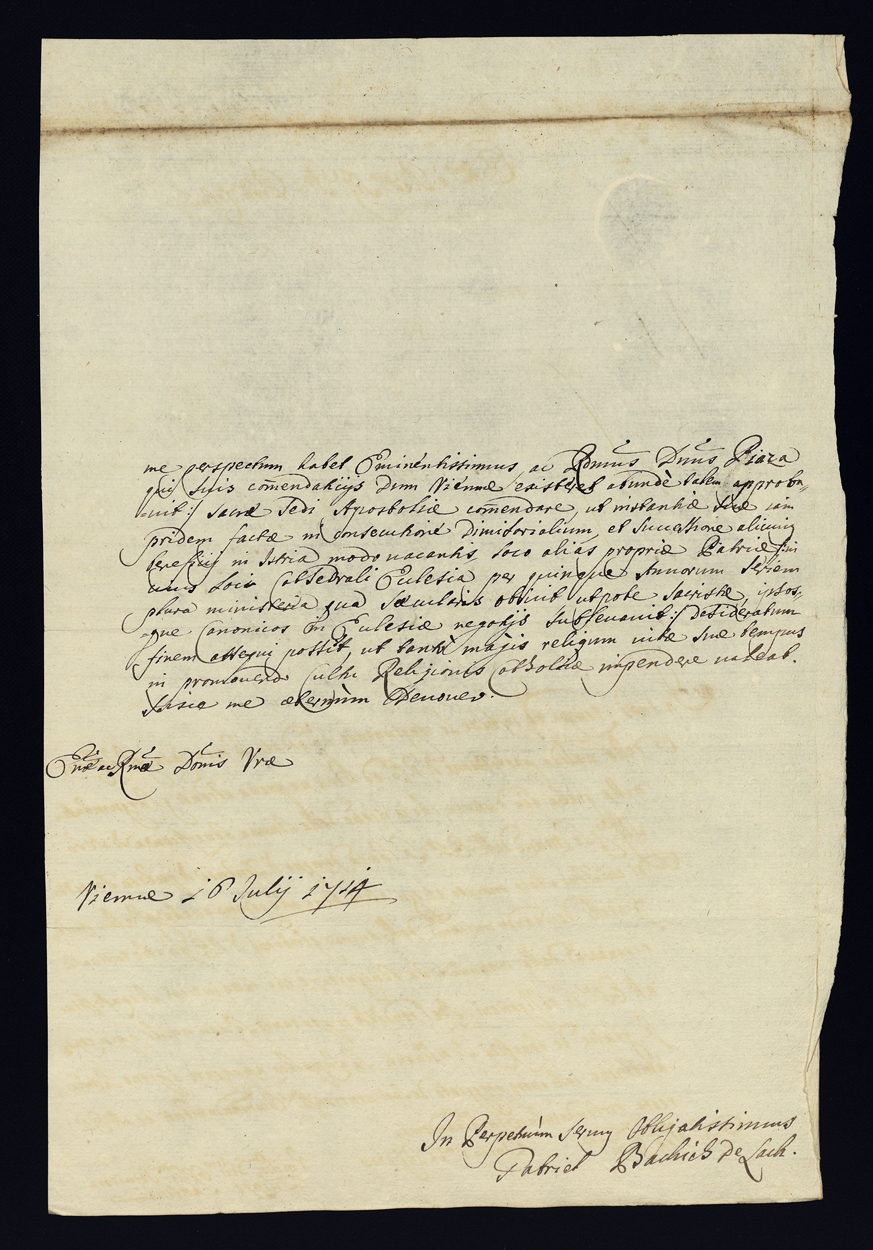 me perspectum habet Eminentissimus, ac Rmus Dnus Piaza
qui suis comendatijs Dum Viennæ existeret abundè talem approba-
-uit:/ sacræ Sedi Apostolicæ comendare, ut instantiæ suæ iam
pridem factæ in consecutione Dimisorialium, et successione alicuius
beneficij in Istria modo uacantis, loco aliàs propriæ Patriæ /:in
cuius loci Cathedrali Eclesia per quinque Annorum seriem
plura ministeria qua sæcularis obiuit utpote sacristæ, ipsos-
-que Canonicos in Eclesiæ negotijs subleuauit:/ desideratum
finem assequi possit, ut tantò majis reliquum uitæ suæ tempus
in promouendo cultu Religionis Catholicæ impendere ualeat.
Sicque me æternùm Deuoueo.
Emæ ac Rmæ Donis Vræ
Viennæ 16 Julij 1714
In Perpetuùm seruus Obligatissimus
Gabriel Bachich De Lach.